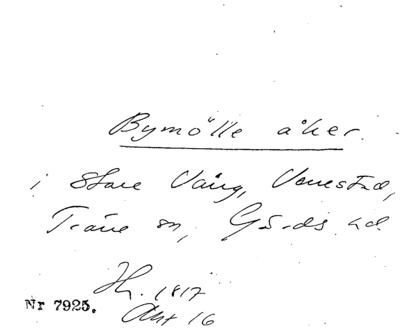 Bymölle åker.
i Store Vång, Vanestad,
Träne sn, Gärds hd
Hy. 1817
Akt 16
Nr 7925.